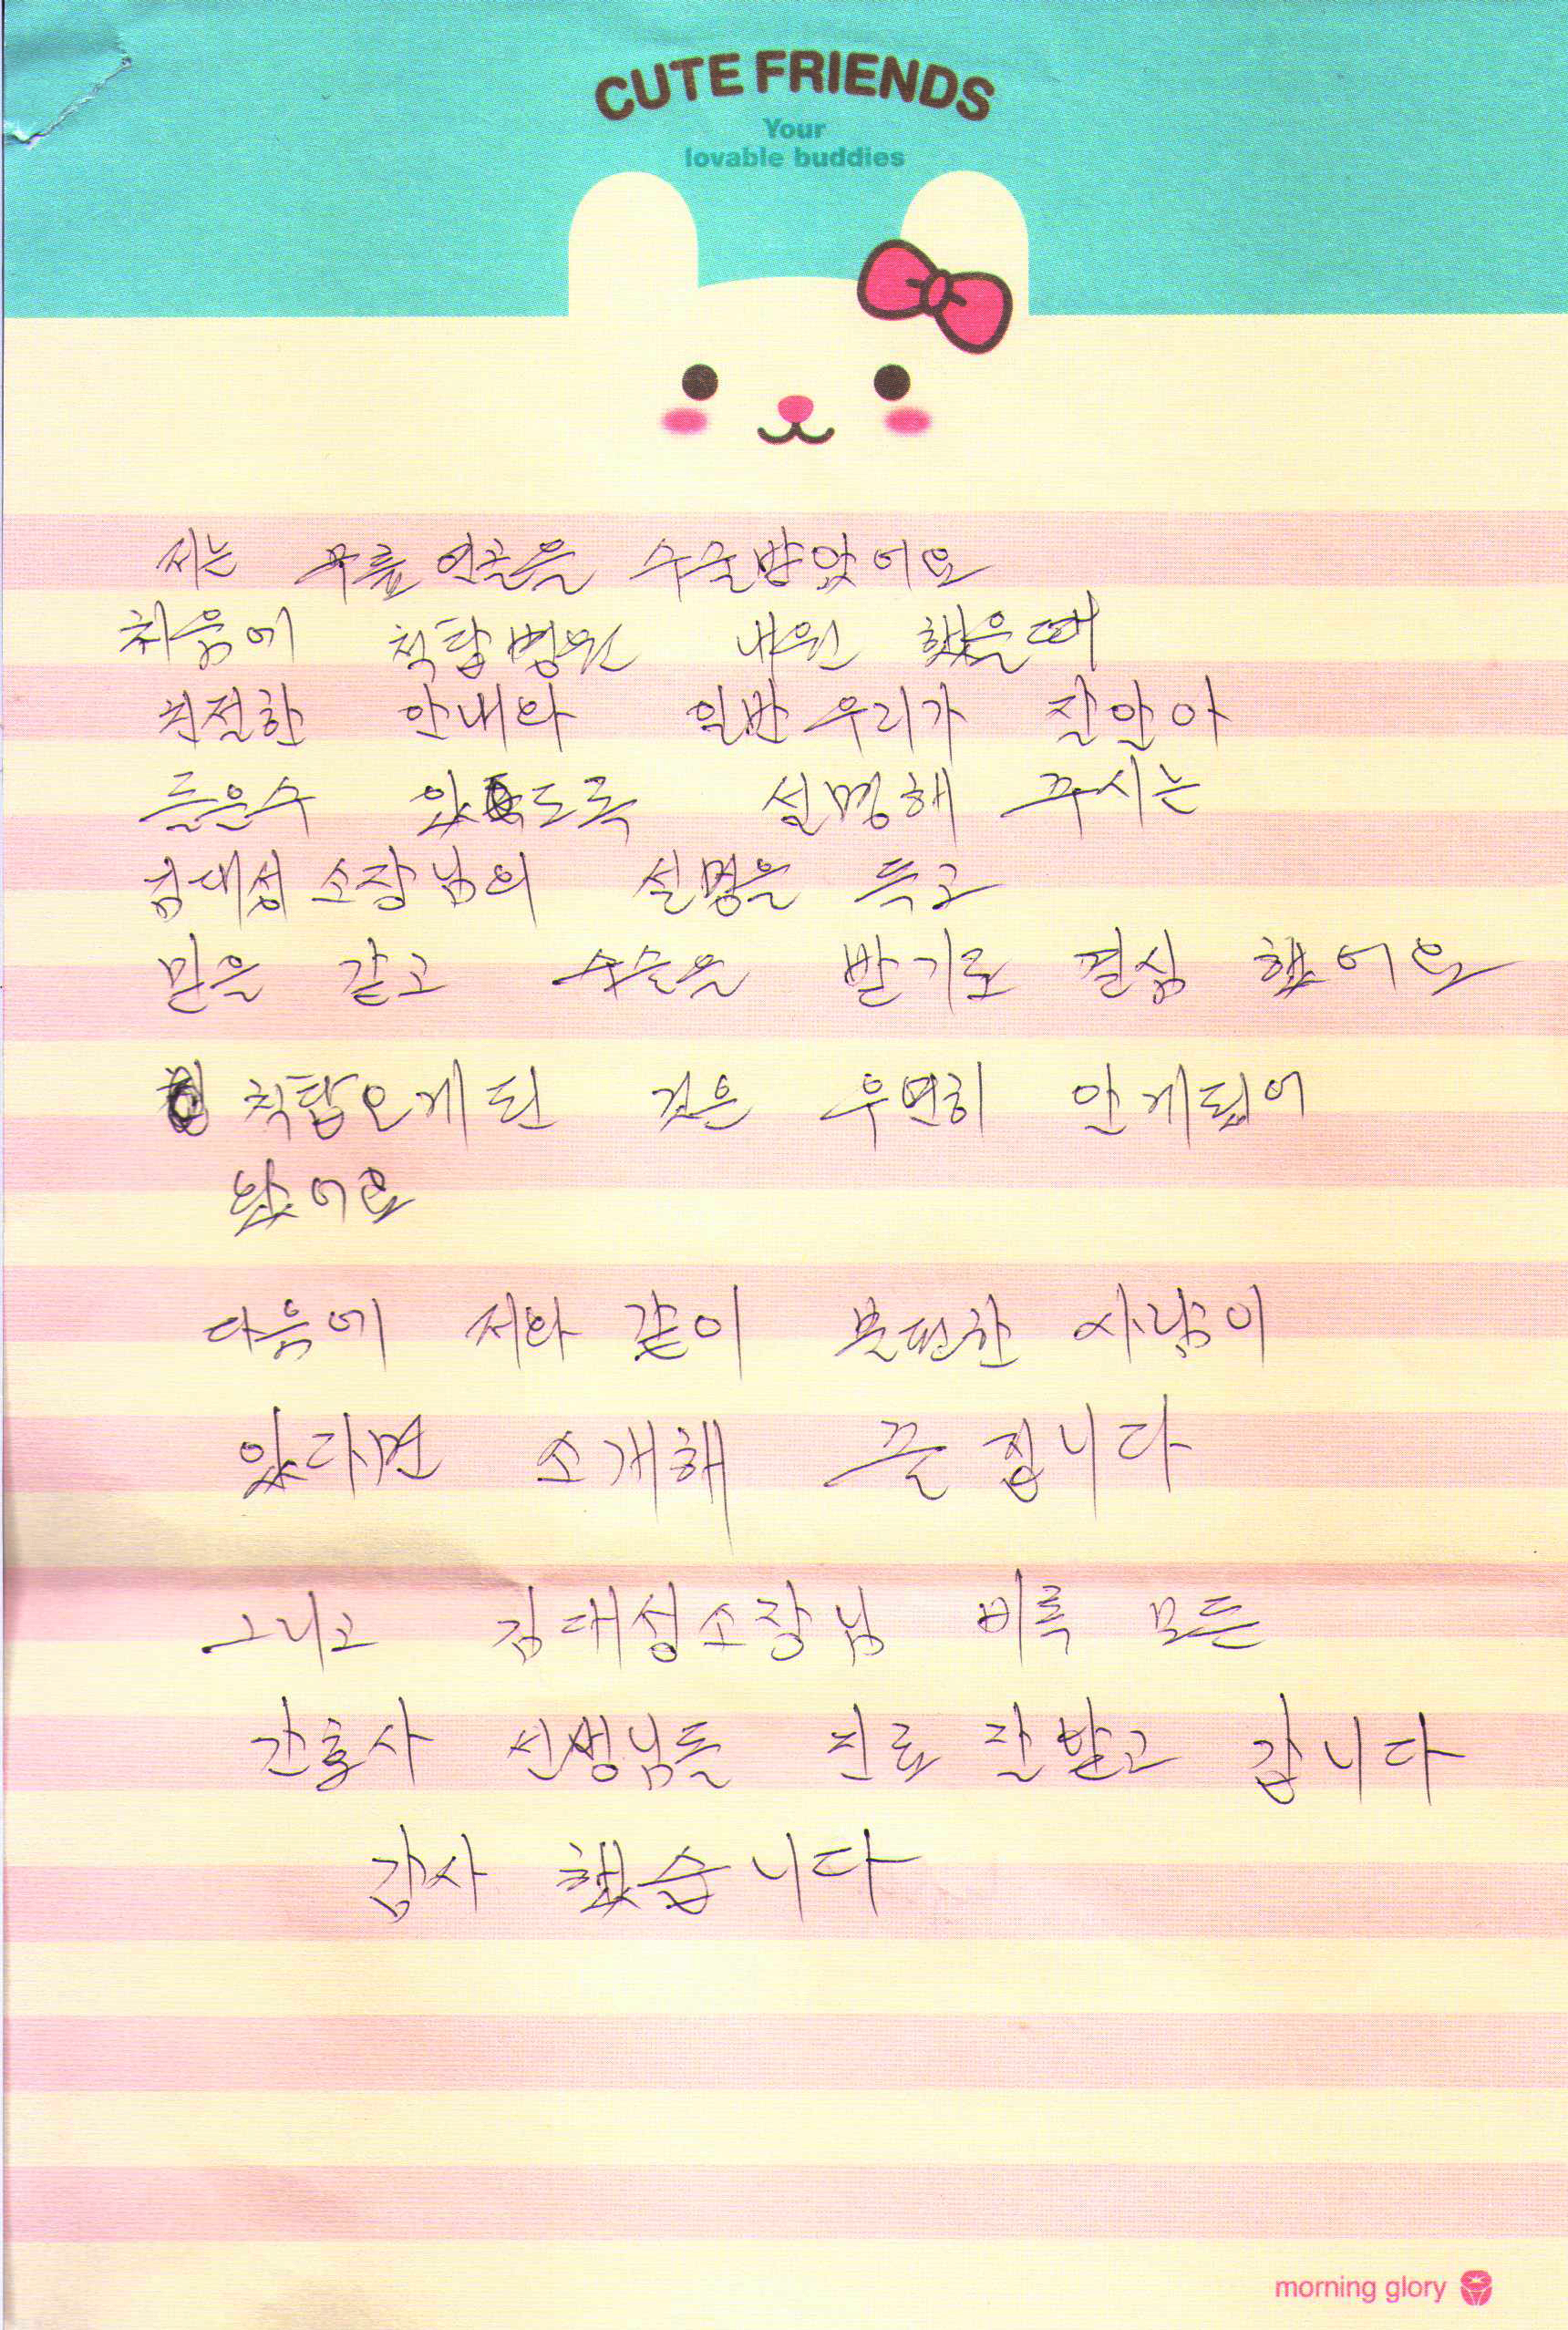 CUTE FRIENDS
Your
lovable buddies
저는 무릎 연골을 수술받았어요
처음에 척탑병원 내원 했을때
친절한 안내와 일반 우리가 잘안아
들은수 있도록 설명해 주시는
김대성 소장님의 설명을 듣고
믿은 같고 수술을 받기로 결심 했어요
척탑오게 된 것은 우연히 안게됬어
왔어요
다음에 저와 같이 불편한 사람이
있다면 소개해 줄 집니다
그니고 김대성소장님 비록 모든
간호사 선생님들 진료 잘받고 갑니다
감사 했습니다
morning glory